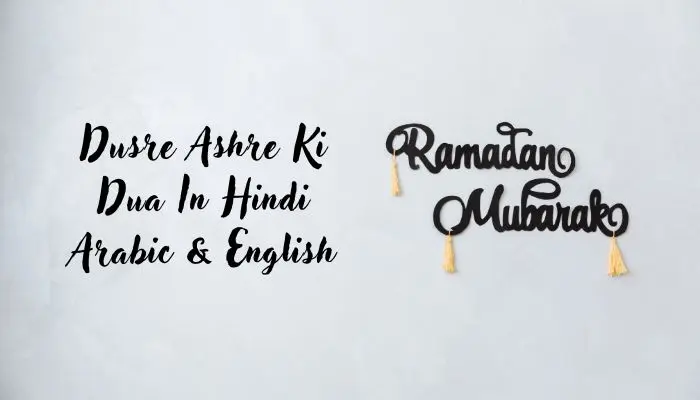 Dusre Ashre Ki
Dua In Hindi
Arabic & English
Ramadan
Mubarak